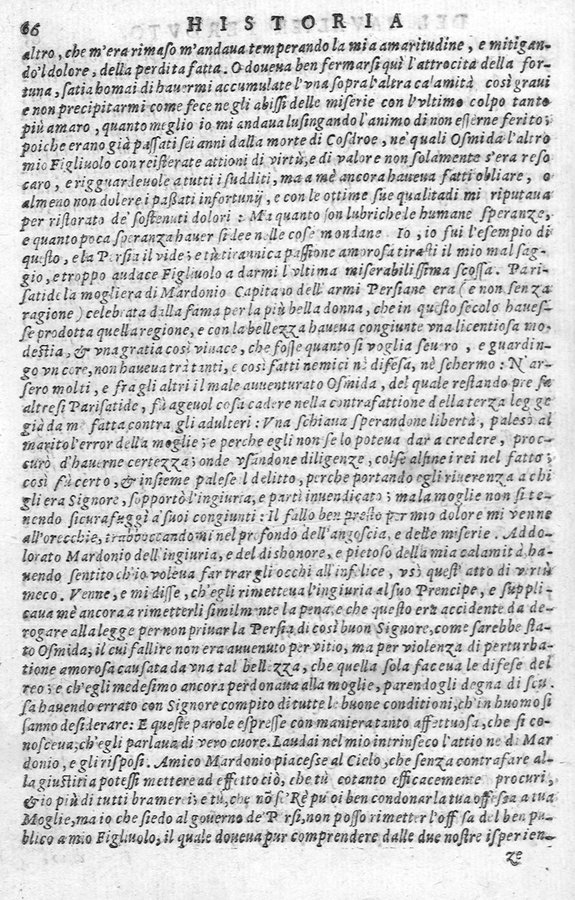 66 HISTORIA
altro, che m'era rimaso m'andaua temperando la mia amaritudine, e mitigan-
do'l dolore, della perdita fatta. O doueua ben fermarsi quì l'attrocità della for-
tuna, satia homai di hauermi accumulate l'vna sopra l'altra calamità così graui
e non precipitarmi come fece negli abissi delle miserie con l'vltimo colpo tanto
più amaro, quanto meglio io mi andaua lusingando l'animo di non esserne ferito;
poiche erano già passati sei anni dalla morte di Cosdroe, ne' quali Osmida l'altro
mio Figliuolo con reiterate attioni di virtù, e di valore non solamente s'era reso
caro, e rigguardeuole a tutti i sudditi, ma a mè ancora haueua fatti obliare, o
almeno non dolere i passati infortunij, e con le ottime sue qualità di mi riputaua
per ristorato de' sostenuti dolori: Ma quanto son lubriche le humane speranze,
e quanto poca speranza hauer si dee nelle cose mondane. Io, io fui l'esempio di
questo, e la Persia il vide; e tù tirannica passione amorosa tirasti il mio mal sag-
gio, e troppo audace Figliuolo a darmi l'vltima miserabilissima scossa. Pari-
satide la mogliera di Mardonio Capitano dell'armi Persiane era (e non senza
ragione) celebrata dalla fama per la più bella donna, che in questo secolo haues-
se prodotta quella regione, e con la bellezza haueua congiunte vna licentiosa mo-
destia, & vna gratia così viuace, che fosse quanto si voglia seuro, e guardin-
go vn core, non haueua trà tanti, e così fatti nemici nè difesa, nè schermo: N'ar-
sero molti, e fra gli altri il male auuenturato Osmida, del quale restando presa
altresi Parisatide, fù ageuol cosa cadere nella contrafattione della terza legge
già da me fatta contra gli adulteri: Vna schiaua sperandone libertà, palesò al
marito l'error della moglie; e perche egli non se lo poteua dar a credere, proc-
curò d'hauerne certezza; onde vsandone diligenze, colse alfine i rei nel fatto;
così fù certo, & insieme palese l delitto, perche portando egli riuerenza a chi
gli era Signore, sopportò l'ingiuria, e partì inuendicato; ma la moglie non si te-
nendo sicura fuggì a' suoi congiunti: Il fallo ben presto per mio dolore mi venne
all'orecchie, traboccandomi nel profondo dell'angoscia, e delle miserie. Addo-
lorato Mardonio dell'ingiuria, e del dishonore, e pietoso della mia calamità, ha-
uendo sentito ch'io voleua far trar gli occhi all'infelice, vsò quest'atto di virtù
meco. Venne, e mi disse, ch'egli rimetteua l'ingiuria al suo Prencipe, e suppli-
caua mè ancora a rimetterli similmente la pena; e che questo era accidente da de-
rogare alla legge per non priuar la Persia di così buon Signore, come sarebbe sta-
to Osmida, il cui fallire non era auuenuto per vitio, ma per violenza di perturba-
tione amorosa causata da vna tal bellezza, che quella sola faceua le difese del
reo; e ch'egli medesimo ancora perdonaua alla moglie, parendogli degna di scu-
sa hauendo errato con Signore compito di tutte le buone conditioni, ch'in huomo si
sanno desiderare: E queste parole espresse con maniera tanto affettuosa, che si co-
nosceua; ch'egli parlaua di vero cuore. Laudai nel mio intrinseco l'attione di Mar
donio, e gli risposi. Amico Mardonio piacesse al Cielo, che senza contrafare al-
la giustitia potessi mettere ad effetto ciò, che tù cotanto efficacemente procuri,
& io più di tutti bramerei; e tù, che nō se' Rè puoi ben condonar la tua offesa a tua
Moglie, ma io che siedo al gouerno de' Persi, non posso rimetter l'offesa del ben pu-
blico a mio Figliuolo, il quale doueua pur comprendere dalle due nostre isperien-
Ze